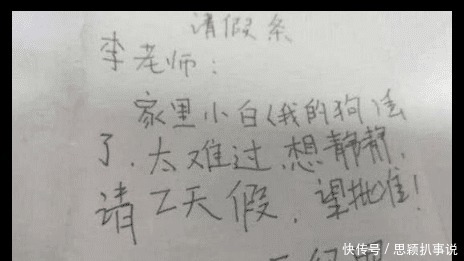 请假条
李老师：
家里小白(我的狗)
了,太难过,想静静,
请2天假,望批准!
快传号/思颖扒事说